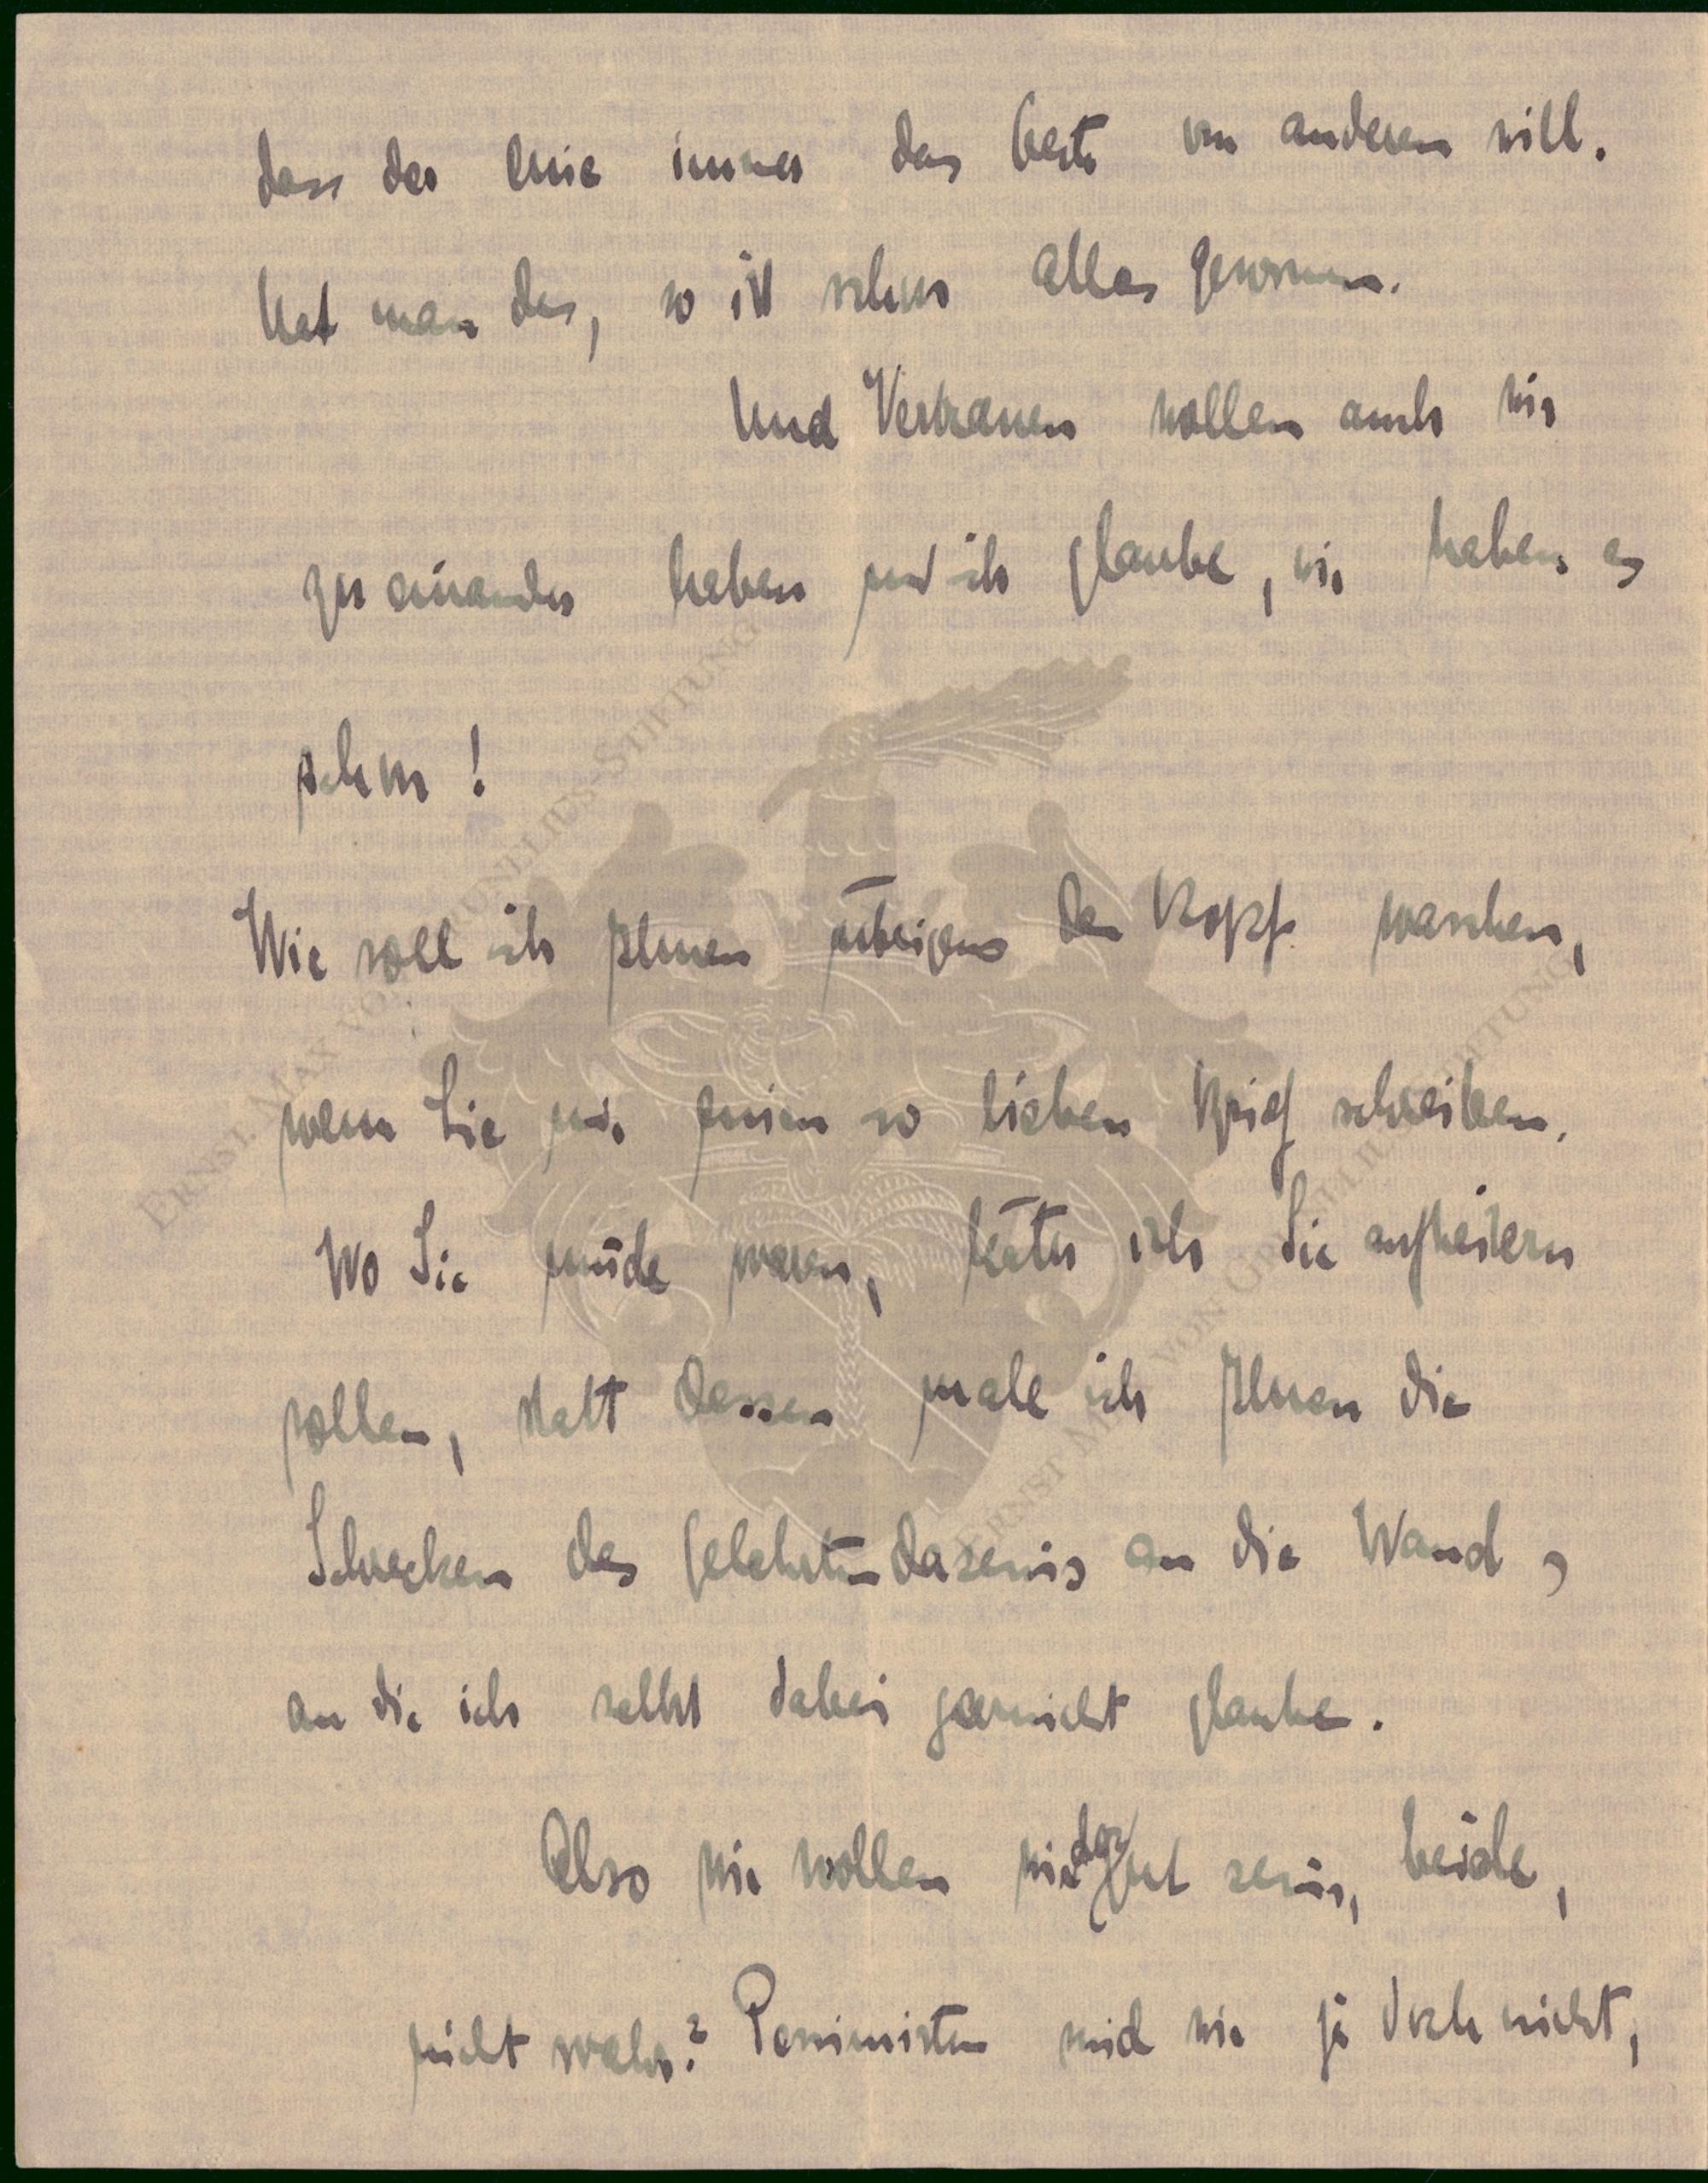 dass der eine immer das beste vom anderen will.
Hat man das, so ist schon alles gewonnen.
Und Vertrauen wollen auch wir
zu einander haben und ich glaube, wir haben es
schon!
Wie soll ich Ihnen übrigens den Kopf waschen,
wenn Sie mir einen so lieben Brief schreiben.
Wo Sie müde waren, hätte ich Sie aufheitern
sollen, statt dessen male ich Ihnen die
Schrecken des Gelehrtendaseins an die Wand,
an die ich selbst dabei garnicht glaube.
Also wir wollen wieder gut sein, beide,
nicht wahr? Pessimisten sind wir ja doch nicht,
ERNST MAX VON GRUNELIUS-STIFTUNG
ERNST MAX VON GRUNELIUS-STIFTUNG